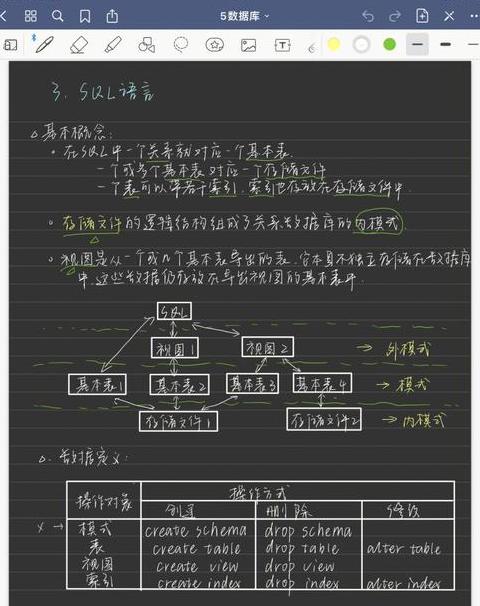 5数据库
3. SQL语言
△基本概念:
· 在SQL中一个关系就对应一个基本表.
一个或多个基本表对应一个存储文件
一个表可以带若干索引.索引也存放在存储文件中.
· 存储文件的逻辑结构组成了关系数据库的内模式.
· 视图是从一个或几个基本表导出的表.它本身不独立存储在数据库
中.这些数据仍存放在导出视图的基本表中.
SQL
视图1 视图2 → 外模式
基本表1 基本表2 基本表3 基本表4 → 模式
存储文件1 存储文件2 → 内模式
△. 数据定义:
操作对象 操作方式
创建 删除 修改
x → 模式 create schema drop schema
表 create table drop table alter table
视图 create view drop view
索引 create index drop index alter index